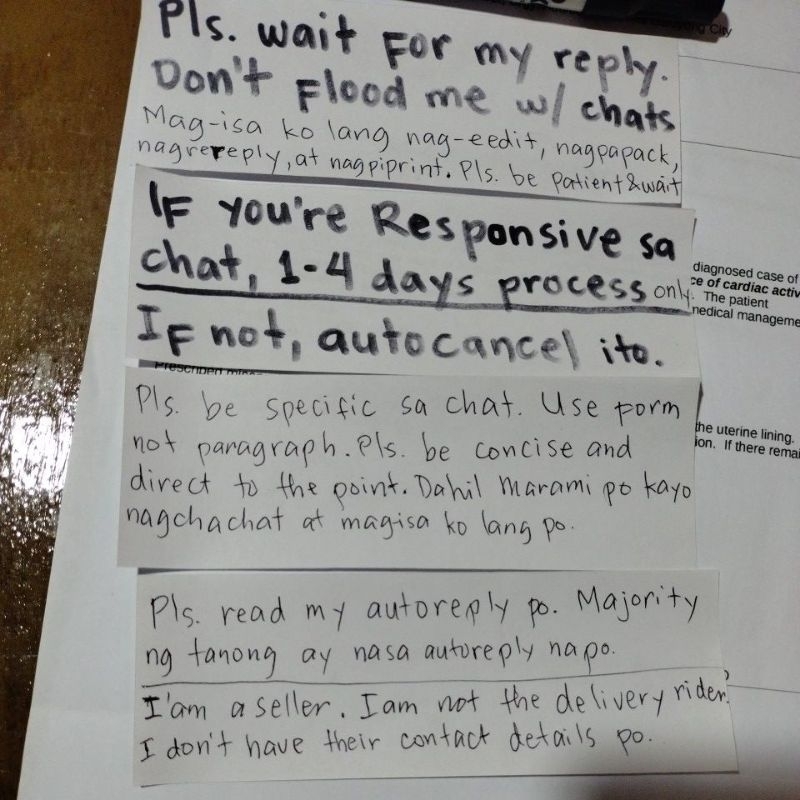 City
Pls. wait for my reply.
Don't flood me w/ chats
Mag-isa ko lang nag-eedit, nagpapack,
nagrereply, at nagpiprint. Pls. be patient & wait
If you're Responsive sa
chat, 1-4 days process only.
If not, autocancel ito.
diagnosed case of
ce of cardiac activ
. The patient
medical manageme
Pls. be specific sa chat. Use form
not paragraph. Pls. be concise and
direct to the point. Dahil marami po kayo
nagchachat at magisa ko lang po.
he uterine lining.
ion. If there remai
Pls. read my autoreply po. Majority
ng tanong ay nasa autoreply na po.
I'am a seller. I am not the delivery rider.
I don't have their contact details po.